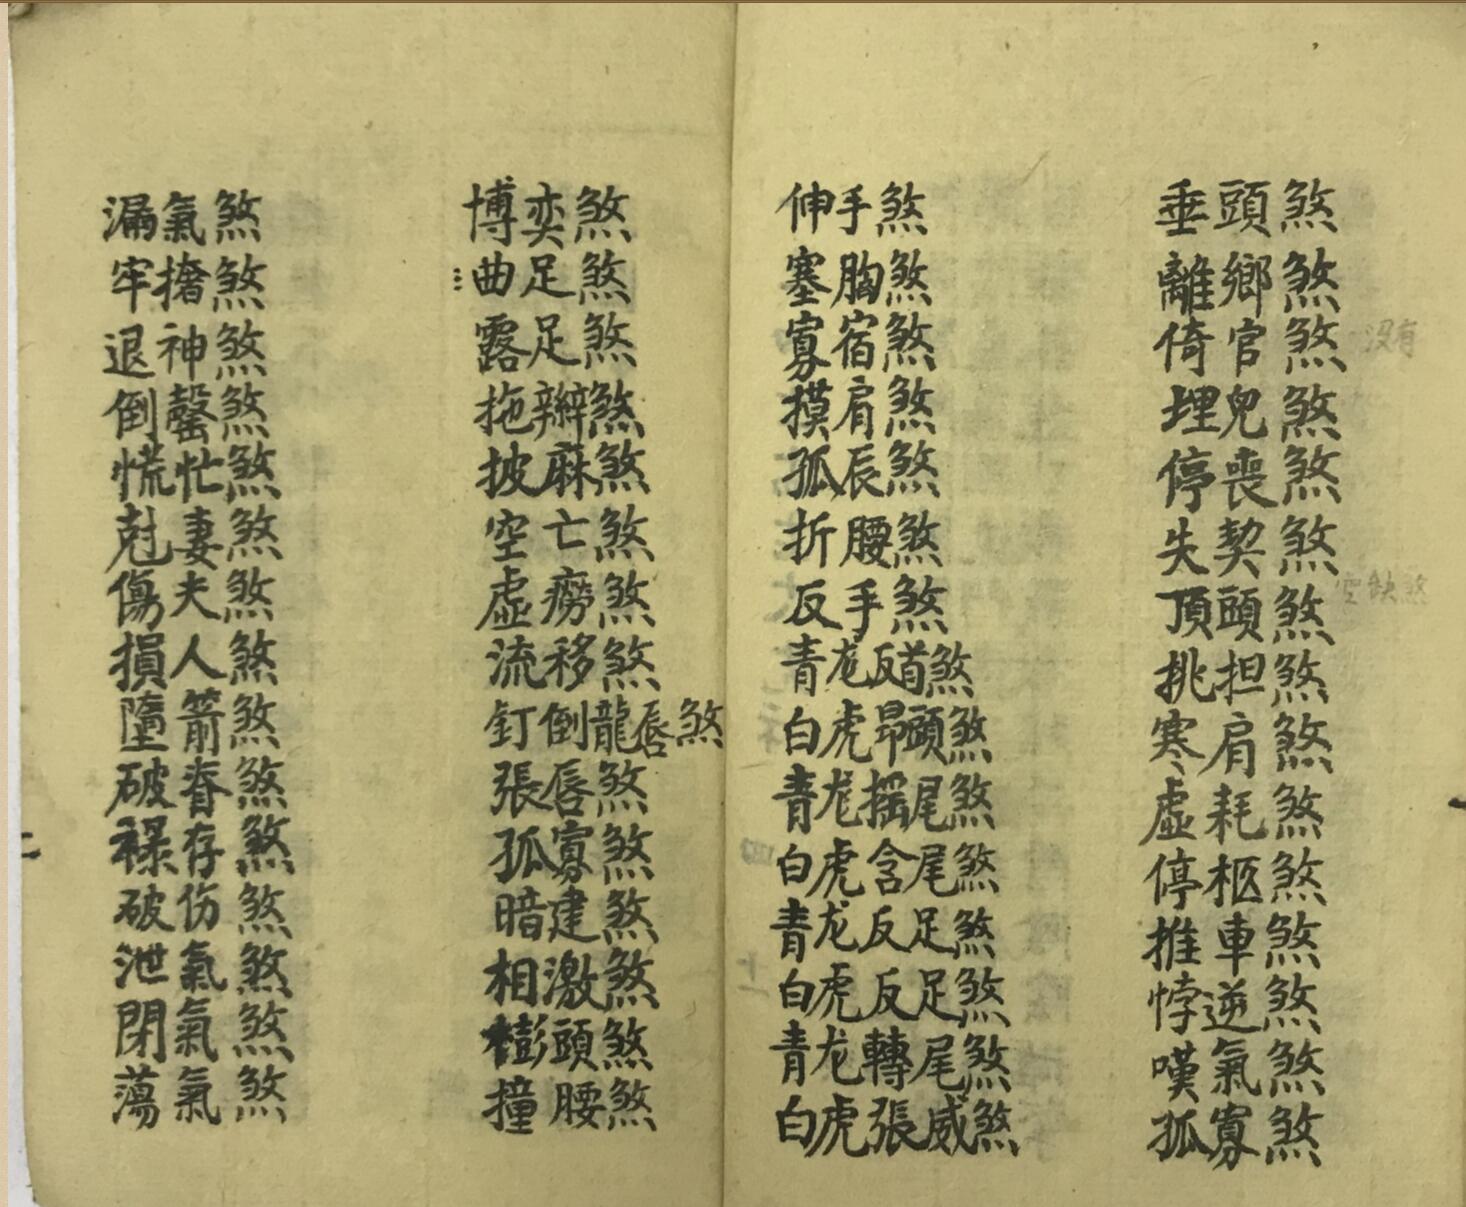 垂頭煞
離鄉煞
倚官煞
没有
埋兒煞
停喪煞
失契煞
頂頭煞
空缺煞
挑担煞
寒肩煞
虛耗煞
停柩煞
推車煞
悖逆煞
嘆氣煞
孤寡煞
伸手煞
塞胸煞
寡宿煞
摸肩煞
孤辰煞
折腰煞
反手煞
青龙反首煞
白虎昂頭煞
青龙摇尾煞
白虎含尾煞
青龙反足煞
白虎反足煞
青龙轉尾煞
白虎張威煞
博奕煞
曲足煞
露足煞
拖辮煞
披麻煞
空亡煞
虛癆煞
流移煞
釘倒龍唇煞
張唇煞
孤寡煞
暗建煞
相激煞
頭煞
撞腰煞
漏氣煞
牢煞
退神煞
倒罄煞
慌忙煞
尅妻煞
傷夫煞
損人煞
墮箭煞
破脊煞
祿存煞
破伤煞
泄氣煞
閉氣煞
蕩氣煞